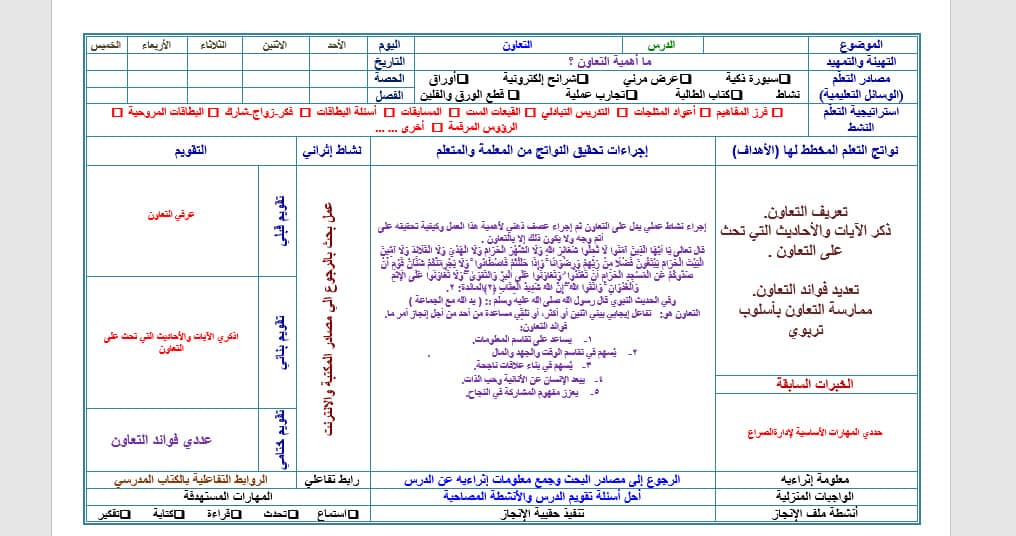 الموضوع الدرس التعاون اليوم الأحد الاثنين الثلاثاء الأربعاء الخميس
التهيئة والتمهيد ما أهمية التعاون ؟ التاريخ
مصادر التعلم سبورة ذكية عرض مرئي شرائح إلكترونية أوراق الحصة
(الوسائل التعليمية) نشاط كتاب الطالبة تجارب عملية قطع الورق والفلين الفصل
استراتيجية التعلم فرز المفاهيم أعواد المثلجات التدريس التبادلي القبعات الست المسابقات أسئلة البطاقات فكر-زواج-شارك البطاقات المروحية
النشط الرؤوس المرقمة أخرى ... ...
نواتج التعلم المخطط لها (الأهداف) إجراءات تحقيق النواتج من المعلمة والمتعلم نشاط إثرائي التقويم
تعريف التعاون.
ذكر الآيات والأحاديث التي تحث
على التعاون .
تعديد فوائد التعاون.
ممارسة التعاون بأسلوب
تربوي
الخبرات السابقة
حددي المهارات الأساسية لإدارةالصراع
إجراء نشاط عملي يدل على التعاون ثم إجراء عصف ذهني لأهمية هذا العمل وكيفية تحقيقه على
أتم وجه ولا يكون ذلك إلا بالتعاون .
قال تعالى يَا أَيُّهَا الَّذِينَ آمَنُوا لَا تُحِلُّوا شَعَائِرَ اللَّهِ وَلَا الشَّهْرَ الْحَرَامَ وَلَا الْهَدْيَ وَلَا الْقَلَائِدَ وَلَا آمِّينَ
الْبَيْتَ الْحَرَامَ يَبْتَغُونَ فَضْلًا مِّن رَّبِّهِمْ وَرِضْوَانًا ۚ وَإِذَا حَلَلْتُمْ فَاصْطَادُوا ۚ وَلَا يَجْرِمَنَّكُمْ شَنَآنُ قَوْمٍ أَن
صَدُّوكُمْ عَنِ الْمَسْجِدِ الْحَرَامِ أَن تَعْتَدُوا ۘ وَتَعَاوَنُوا عَلَى الْبِرِّ وَالتَّقْوَىٰ ۖ وَلَا تَعَاوَنُوا عَلَى الْإِثْمِ
وَالْعُدْوَانِ ۚ وَاتَّقُوا اللَّهَ ۖ إِنَّ اللَّهَ شَدِيدُ الْعِقَابِ (٢)المائدة: ٢.
وفي الحديث النبوي قال رسول الله صلى الله عليه وسلم :: ( يد الله مع الجماعة )
التعاون هو: تفاعل إيجابي بيني اثنين أو أكثر، أو تلقي مساعدة من أحد من أجل إنجاز أمر ما.
فوائد التعاون:
١- يساعد على تقاسم المعلومات.
٢- يُسهم في تقاسم الوقت والجهد والمال .
٣- يُسهم في بناء علاقات ناجحة.
٤- يبعد الإنسان عن الأنانية وحب الذات.
٥- يعزز مفهوم المشاركة في النجاح.
عمل بحث بالرجوع الي مصادر المكتبة والانترنت
تقويم قبلي عرفي التعاون
تقويم بنائي اذكري الآيات والأحاديث التي تحث على
التعاون
تقويم ختامي عددي فوائد التعاون
معلومة إثرائيه الرجوع إلى مصادر البحث وجمع معلومات إثرائيه عن الدرس رابط تفاعلي الروابط التفاعلية بالكتاب المدرسي
الواجبات المنزلية أحل أسئلة تقويم الدرس والأنشطة المصاحبة المهارات المستهدفة
أنشطة ملف الإنجاز تنفيذ حقيبة الإنجاز استماع تحدث قراءة كتابة تفكير